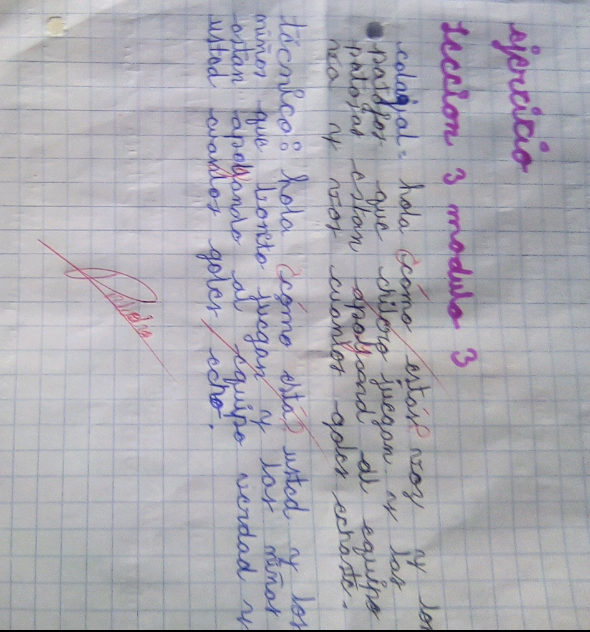 ejercicio
leccion 3 modulo 3
colojal: hola ¿como estas? vos y los
patojos que chilero juegan y las
patojas estan apoyand al equipo
vea y vos cuantos goles echaste.
técnico: hola ¿cómo está? usted y los
niños que bonito juegan y las niñas
estan apoyando al equipo verdad y
usted cuantos goles echo.